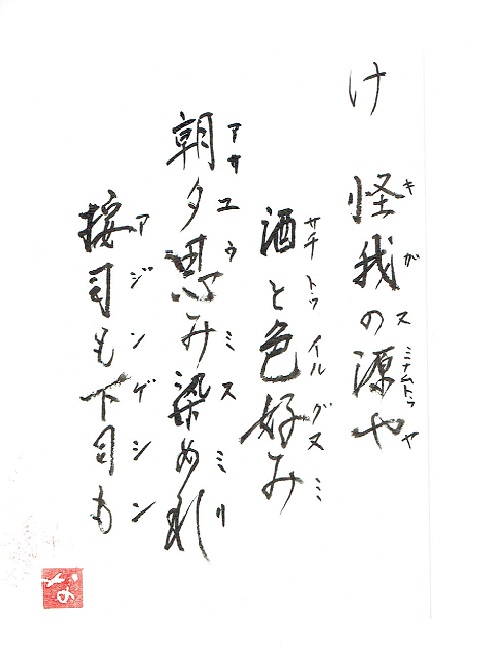 け
怪我の源や
キガスミナムトゥヤ
酒と色好み
サチトゥイルグヌミ
朝夕思み染めれ
アサユウミスミリ
按司も下司も
アジンゲシン